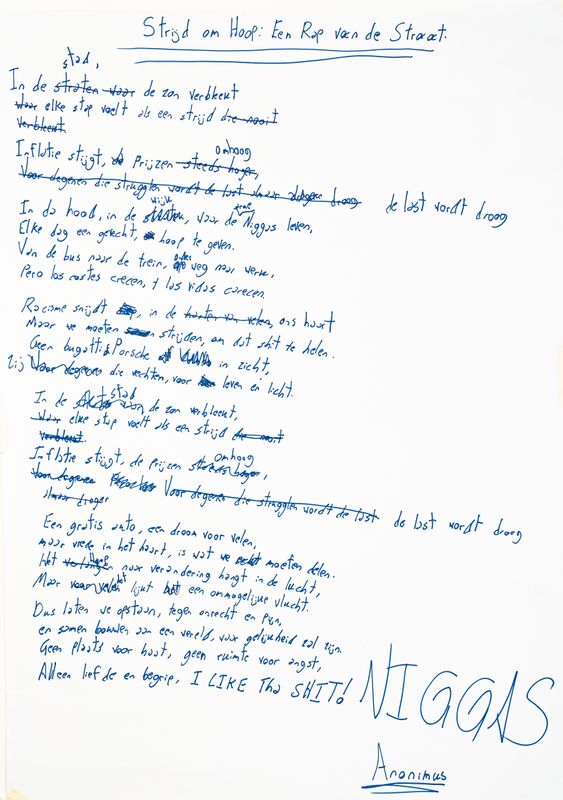 Strijd om Hoop: Een Rap van de Straat.
stad,
In de straten waar de zon verbleekt
waar elke stap voelt als een strijd die nooit
verbleekt.
omhoog
Inflatie stijgt, de Prijzen steeds hoger,
Voor degenen die struggelen wordt de last alsmaar droog de last wordt droog
wijk
In da hood, in de straten, waar de arme Niggas leven,
Elke dag een gevecht, hoop te geven.
Van de bus naar de trein, weg naar werk,
Pero los costes crecen, y las vidas carecen.
Racisme snijdt in de harten van velen, ons hart
Maar we moeten strijden, om dat shit te helen.
Geen bugatti Porsche in zicht,
Zij Voor degenen die vechten, voor leven en licht.
stad
In de de zon verbleekt,
waar elke stap voelt als een strijd die nooit
verbleekt.
omhoog
Inflatie stijgt, de prijzen steeds hoger,
Voor degenen Voor degenen die struggelen wordt de last de last wordt droog
alsmaar droger
Een gratis auto, een droom voor velen,
maar vrede in het hart, is wat we echt moeten delen.
Het verlangen naar verandering hangt in de lucht,
Maar voor velen lijkt het een onmogelijke vlucht.
Dus laten we opstaan, tegen onrecht en pijn,
en samen bouwen aan een wereld, waar gelijkheid zal zijn.
Geen plaats voor haat, geen ruimte voor angst,
Alleen liefde en begrip, I LIKE Tha SHIT! NIGGAS
Anonimus